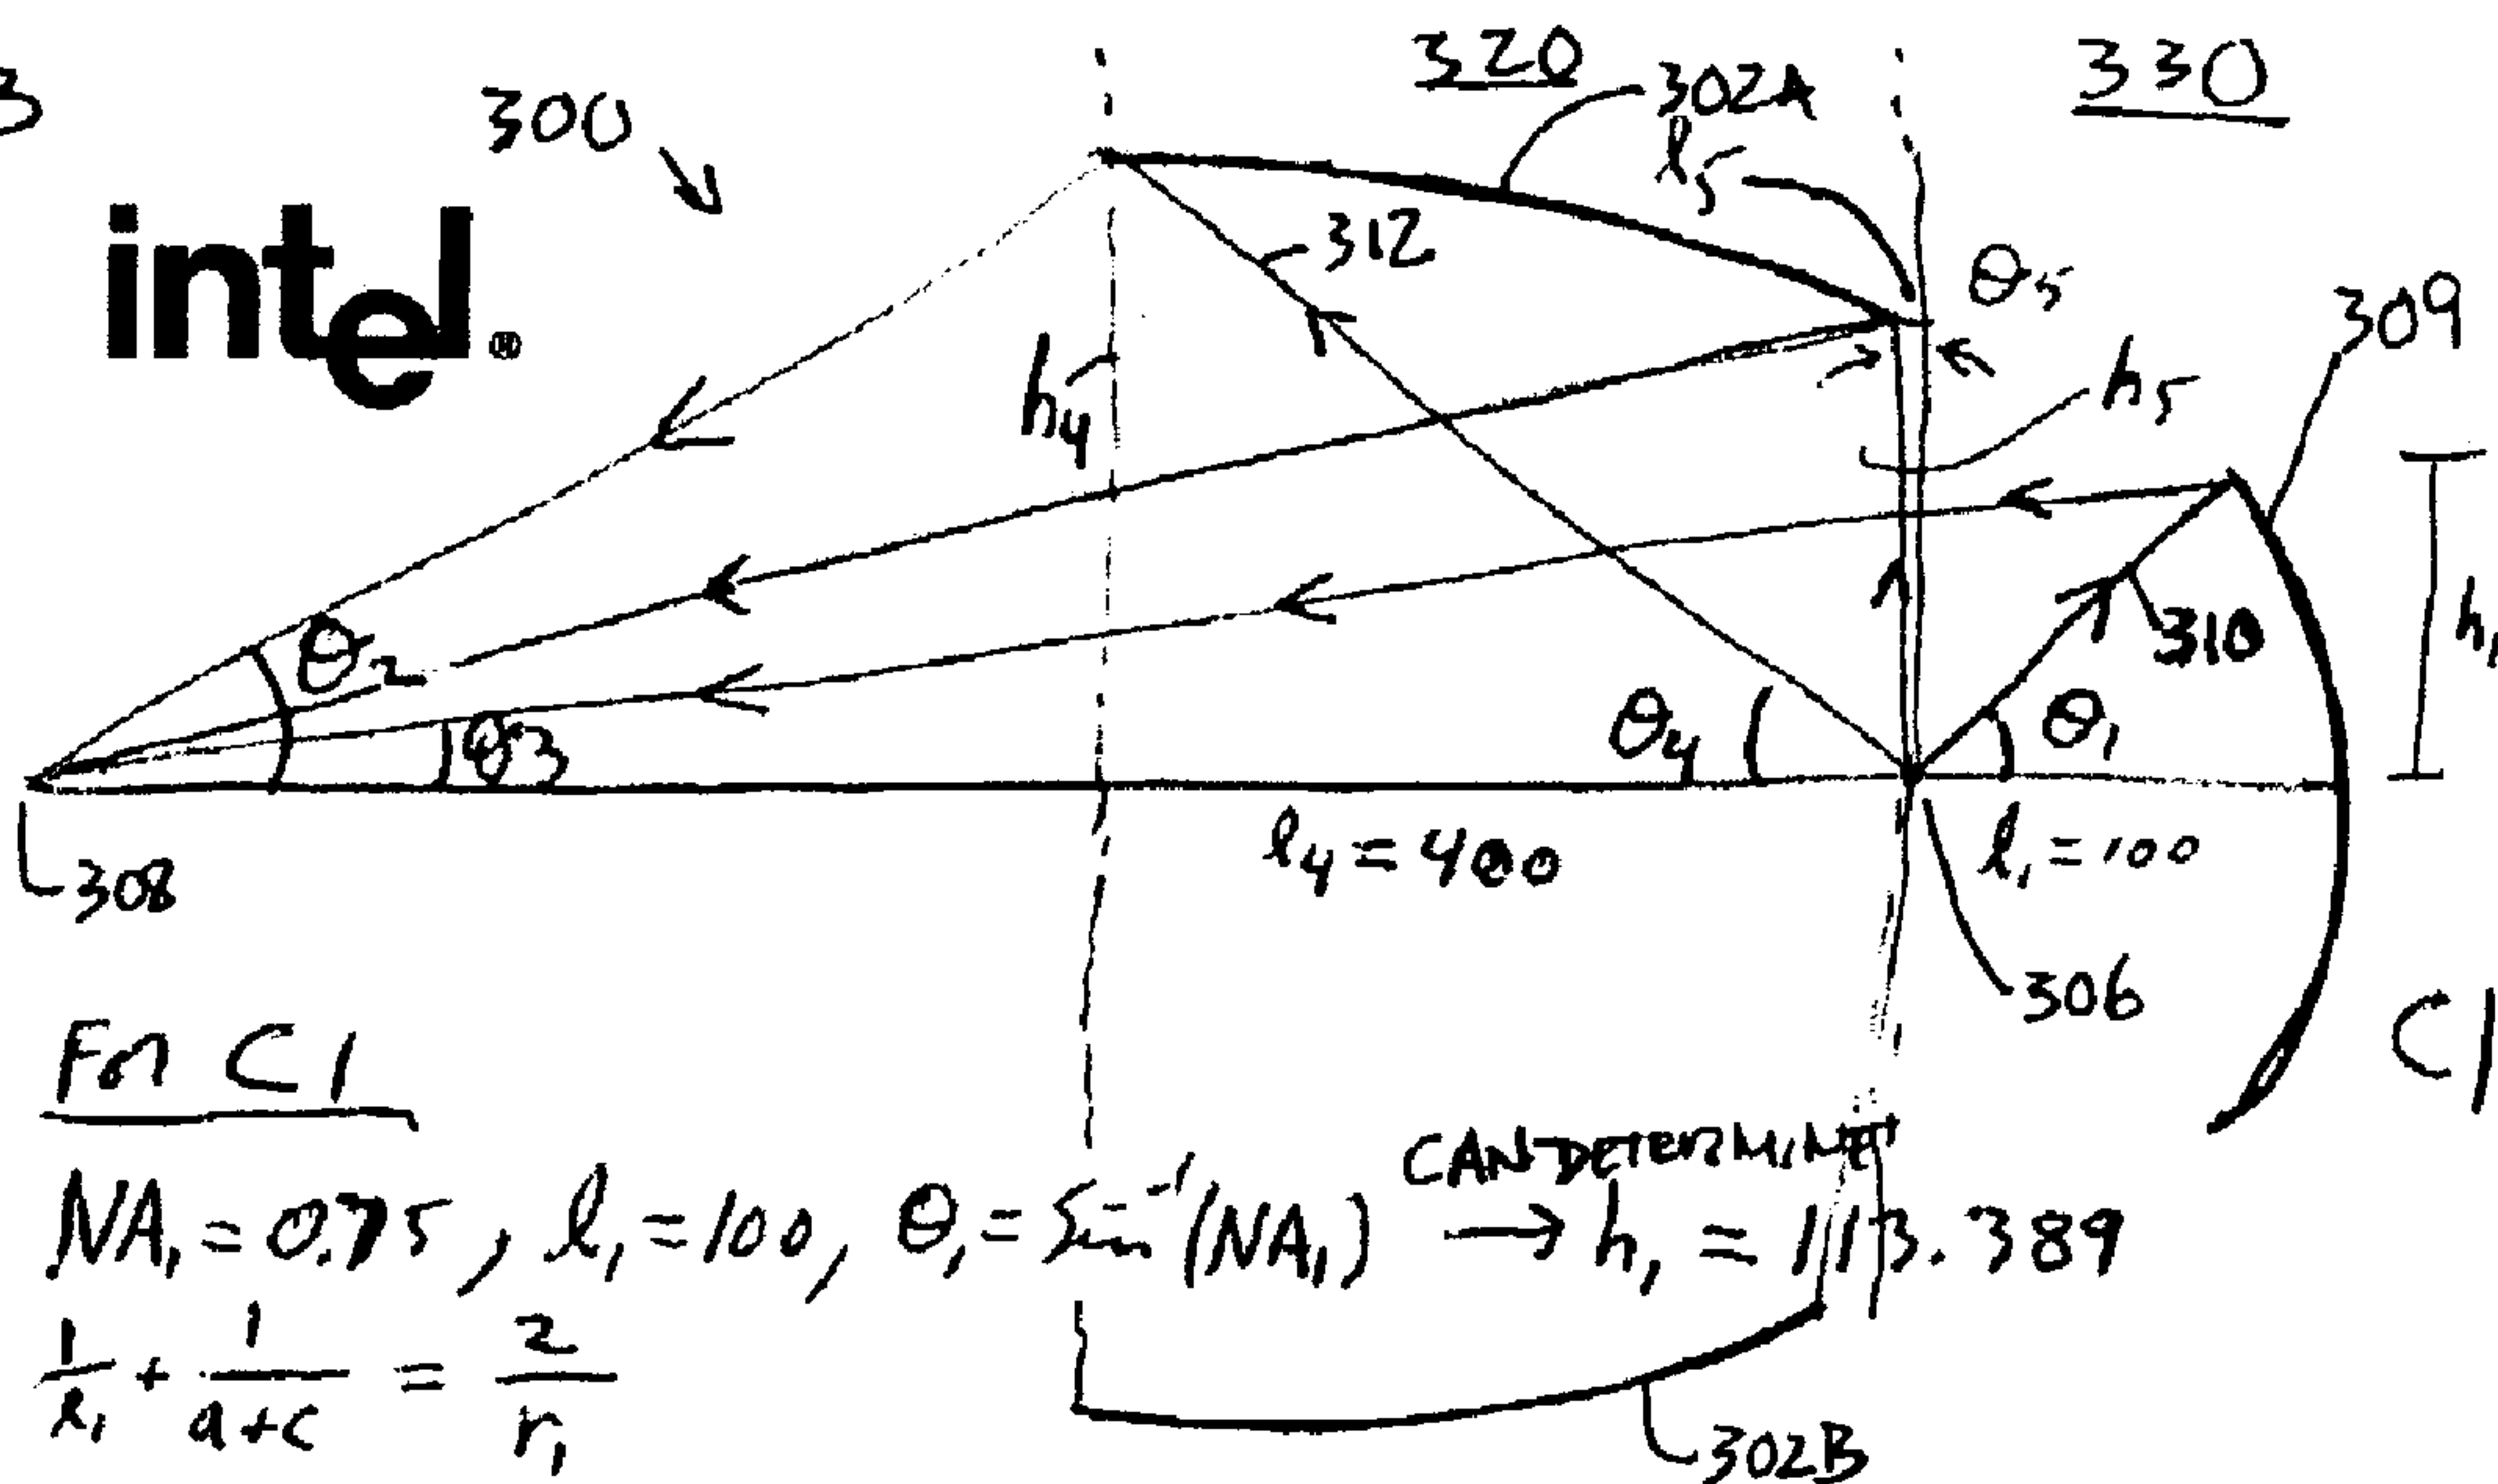 320
330
300
302A
l5
intel®
312
θ5
309
h4
h5
θ2
310
θ3
θ4
θ1
l4 = 400
l1 = 100
308
306
For C1
C1
CAN DETERMINE
NA1 = 0.75, l1 = 100, θ1 = Sin^-1 (NA1) → h1 = 113.389
1/l1 + 1/(a+c) = 2/r1
302B